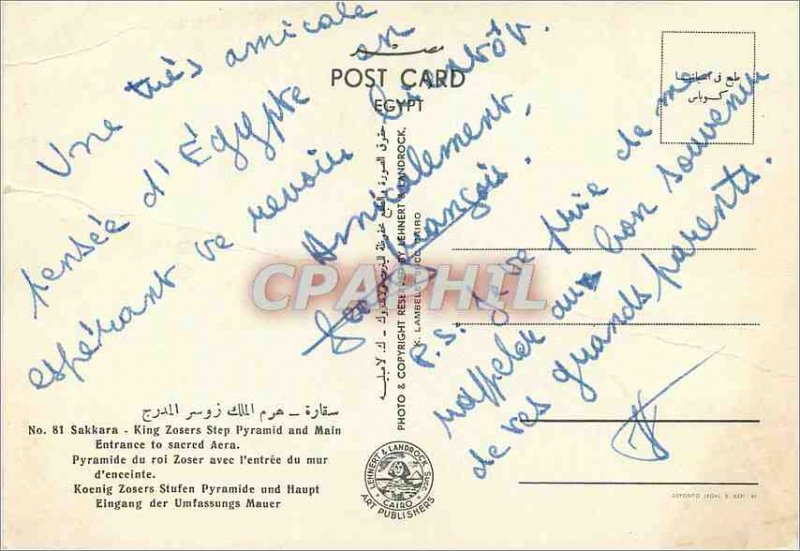 Une très amicale
pensée d'Égypte en
espérant te revoir bientôt.
Amicalement,
François.
P.S. Je te prie de me
rappeler au bon souvenir
de tes grands parents.
مصر
POST CARD
EGYPT
طبع في اسبانيا
كوباس
PHOTO & COPYRIGHT RESERVED BY LEHNERT & LANDROCK,
K. LAMBELET SUCC. CAIRO
CPAPHIL
سقارة – هرم الملك زوسر المدرج
No. 81 Sakkara - King Zosers Step Pyramid and Main
Entrance to sacred Aera.
Pyramide du roi Zoser avec l'entrée du mur
d'enceinte.
Koenig Zosers Stufen Pyramide und Haupt
Eingang der Umfassungs Mauer
LEHNERT & LANDROCK SUCC.
CAIRO
ART PUBLISHERS